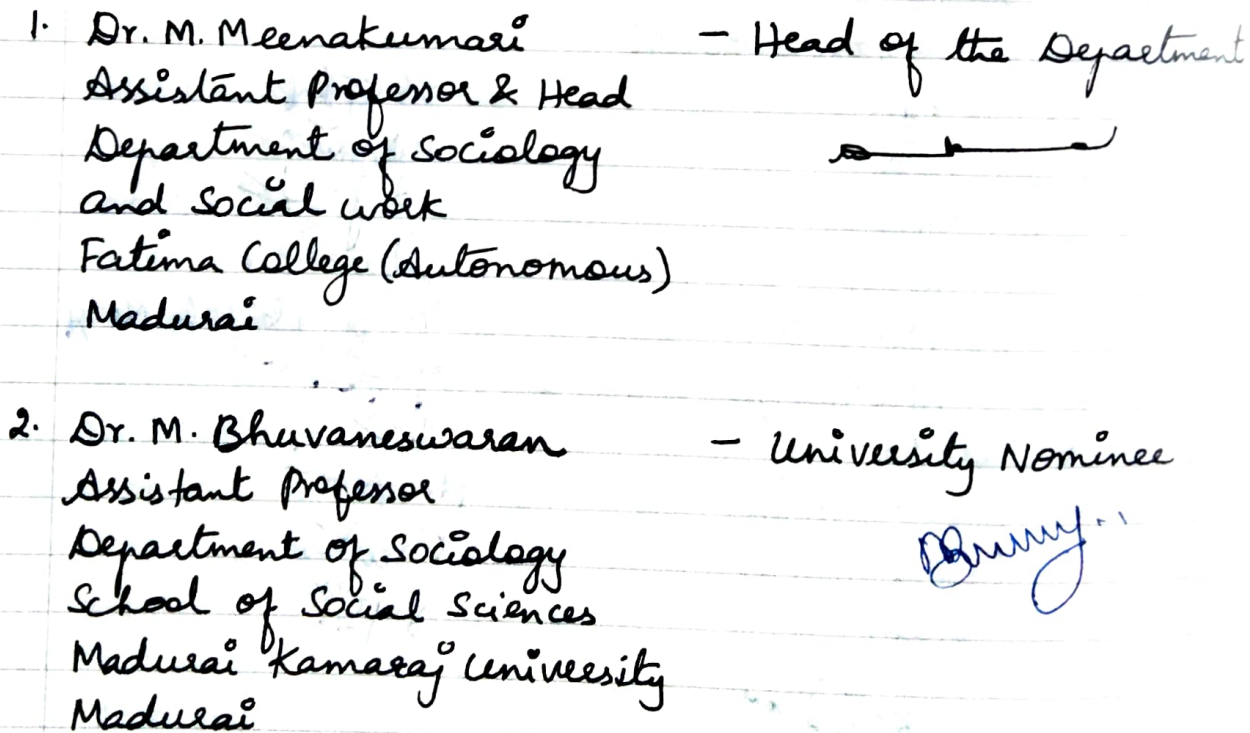 1. Dr. M. Meenakumari - Head of the Department
Assistant Professor & Head
Department of Sociology
and Social work
Fatima College (Autonomous)
Madurai
2. Dr. M. Bhuvaneswaran - University Nominee
Assistant Professor
Department of Sociology
School of Social Sciences
Madurai Kamaraj University
Madurai